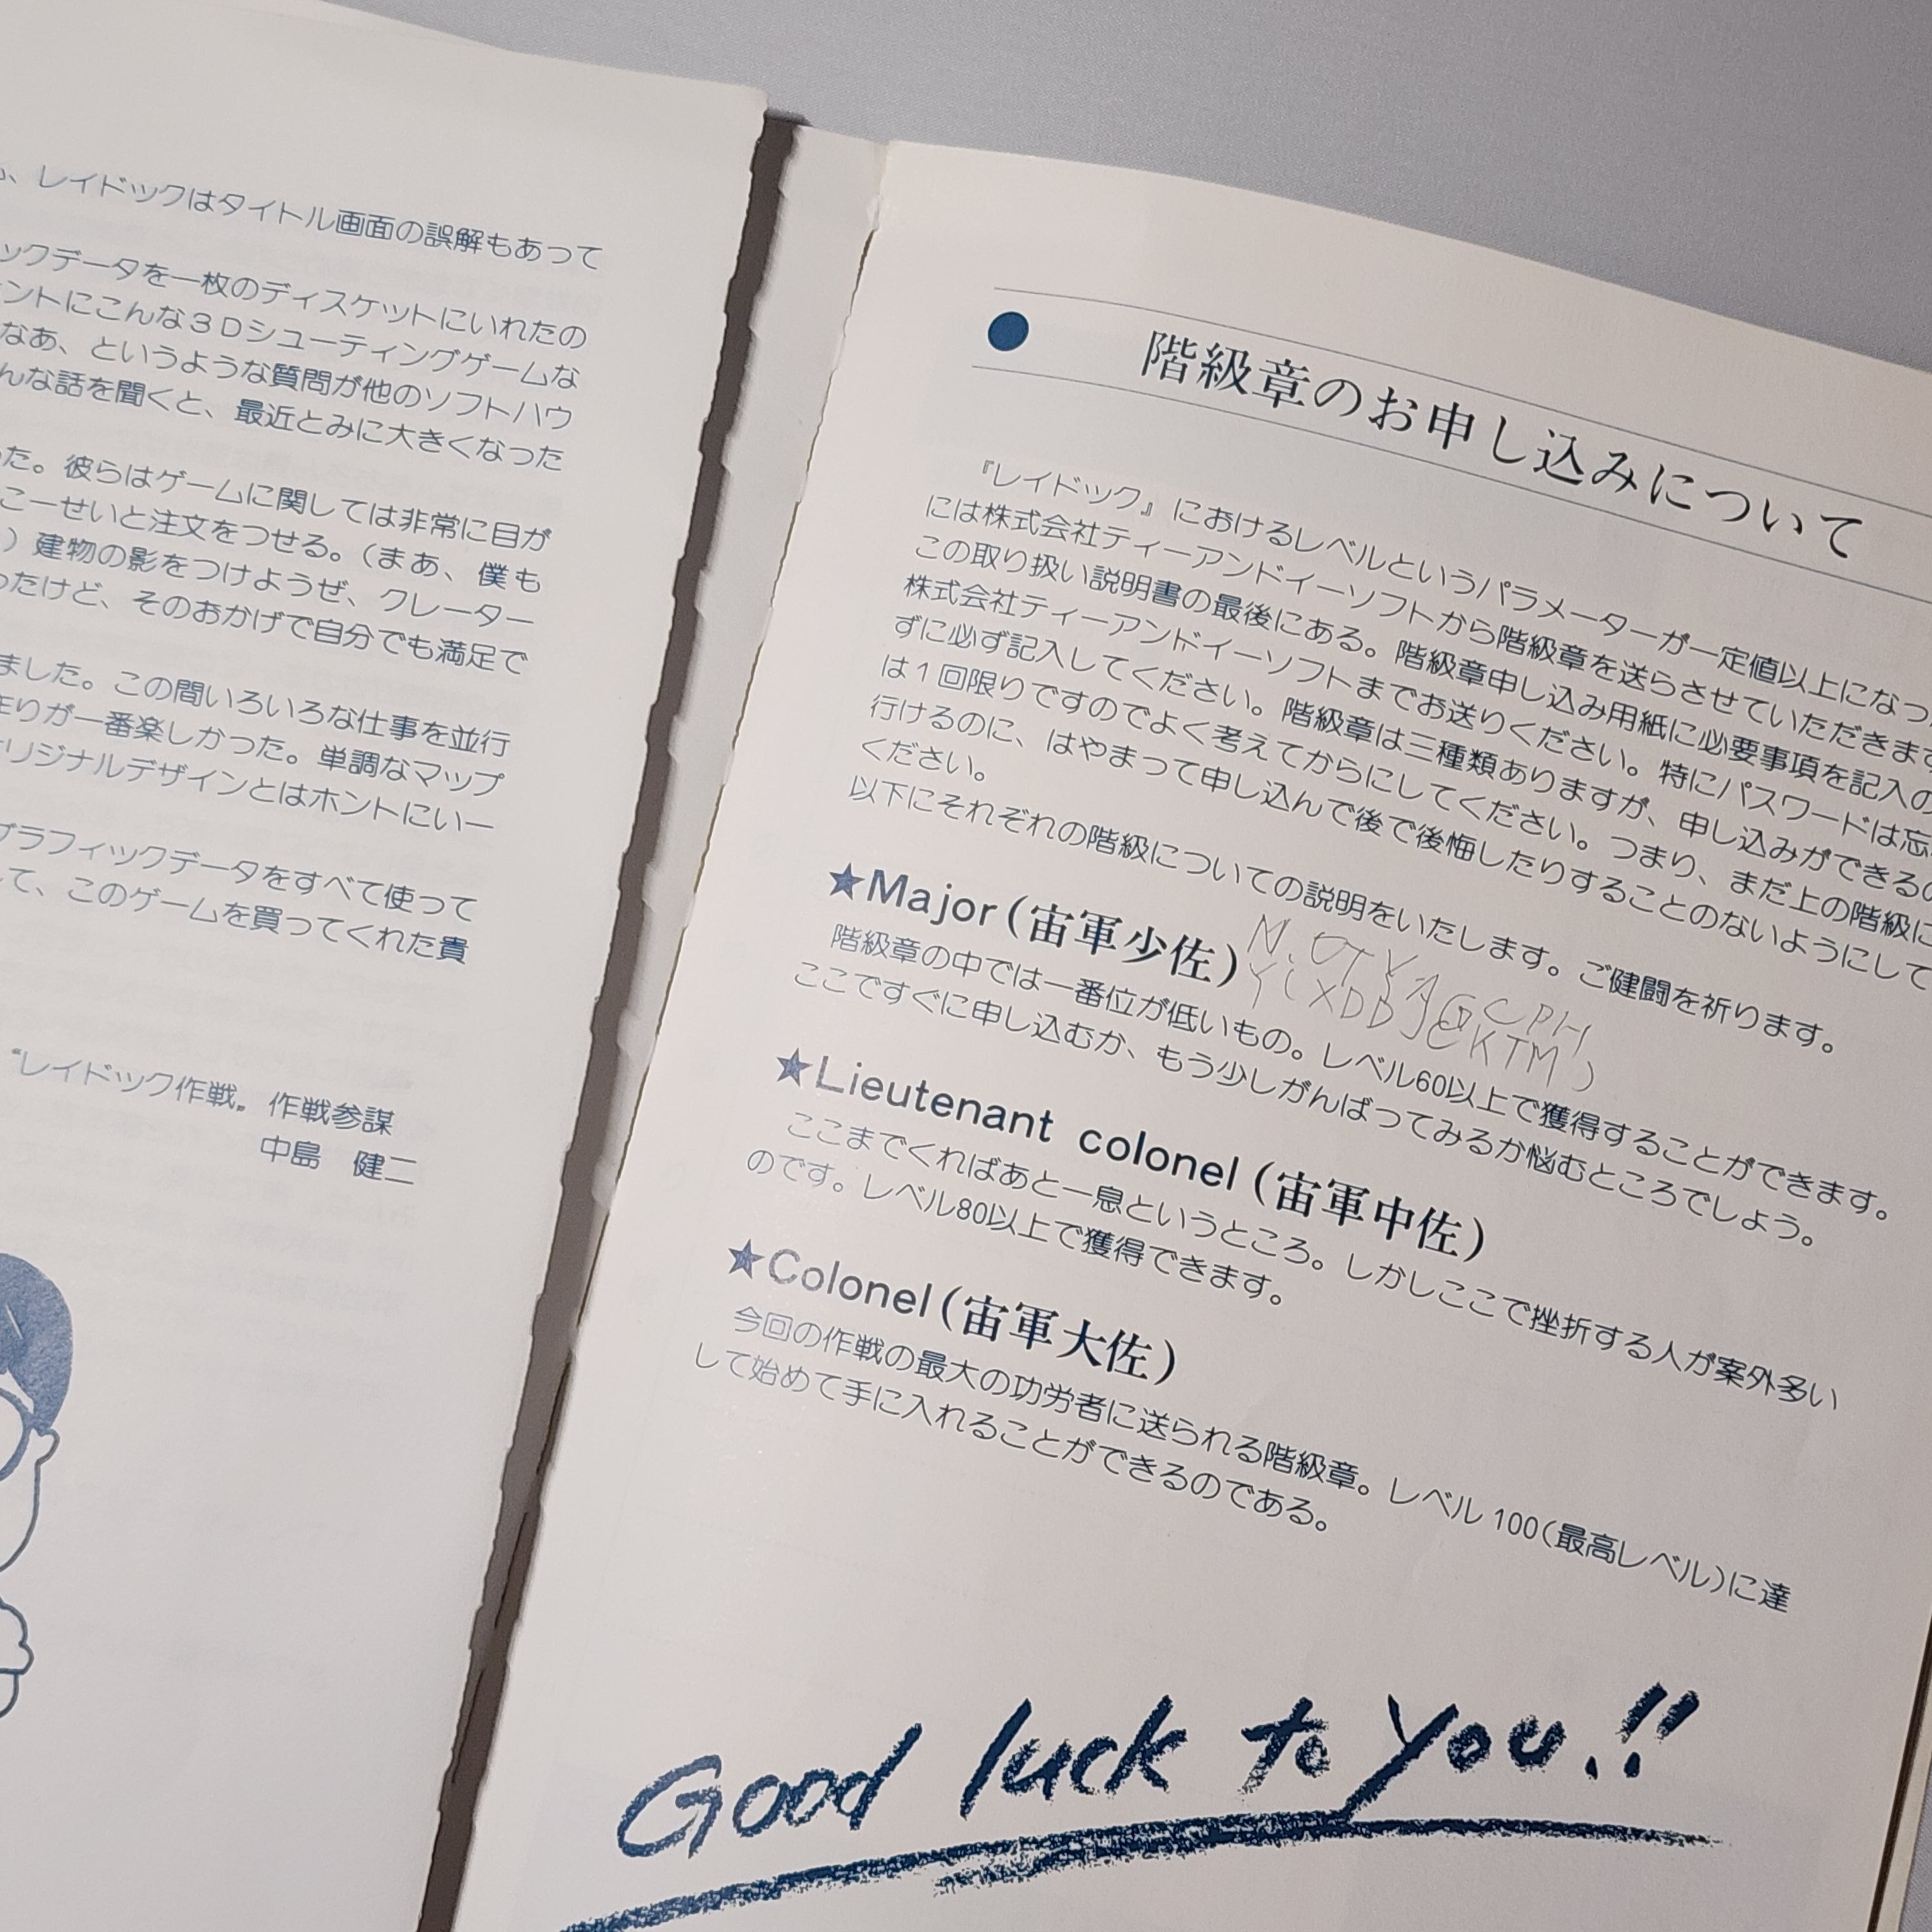 、レイドックはタイトル画面の誤解もあって
ックデータを一枚のディスケットにいれたの
ントにこんな3Dシューティングゲームな
なあ、というような質問が他のソフトハウ
んな話を聞くと、最近とみに大きくなった
た。彼らはゲームに関しては非常に目が
こーせいと注文をつせる。(まあ、僕も
)建物の影をつけようぜ、クレーター
ったけど、そのおかげで自分でも満足で
ました。この間いろいろな仕事を並行
作りが一番楽しかった。単調なマップ
オリジナルデザインとはホントにいー
グラフィックデータをすべて使って
て、このゲームを買ってくれた貴
“レイドック作戦〟作戦参謀
中島 健二
● 階級章のお申し込みについて
『レイドック』におけるレベルというパラメーターが一定値以上になっ
には株式会社ティーアンドイーソフトから階級章を送らさせていただきます
この取り扱い説明書の最後にある。階級章申し込み用紙に必要事項を記入の
株式会社ティーアンドイーソフトまでお送りください。特にパスワードは忘
ずに必ず記入してください。階級章は三種類ありますが、申し込みができるの
は1回限りですのでよく考えてからにしてください。つまり、まだ上の階級に
行けるのに、はやまって申し込んで後で後悔したりすることのないようにして
ください。
以下にそれぞれの階級についての説明をいたします。ご健闘を祈ります。
★Major(宙軍少佐)
階級章の中では一番位が低いもの。レベル60以上で獲得することができます。
ここですぐに申し込むか、もう少しがんばってみるか悩むところでしょう。
★Lieutenant colonel(宙軍中佐)
ここまでくればあと一息というところ。しかしここで挫折する人が案外多い
のです。レベル80以上で獲得できます。
★Colonel(宙軍大佐)
今回の作戦の最大の功労者に送られる階級章。レベル100(最高レベル)に達
して始めて手に入れることができるのである。
Good luck to you.!!